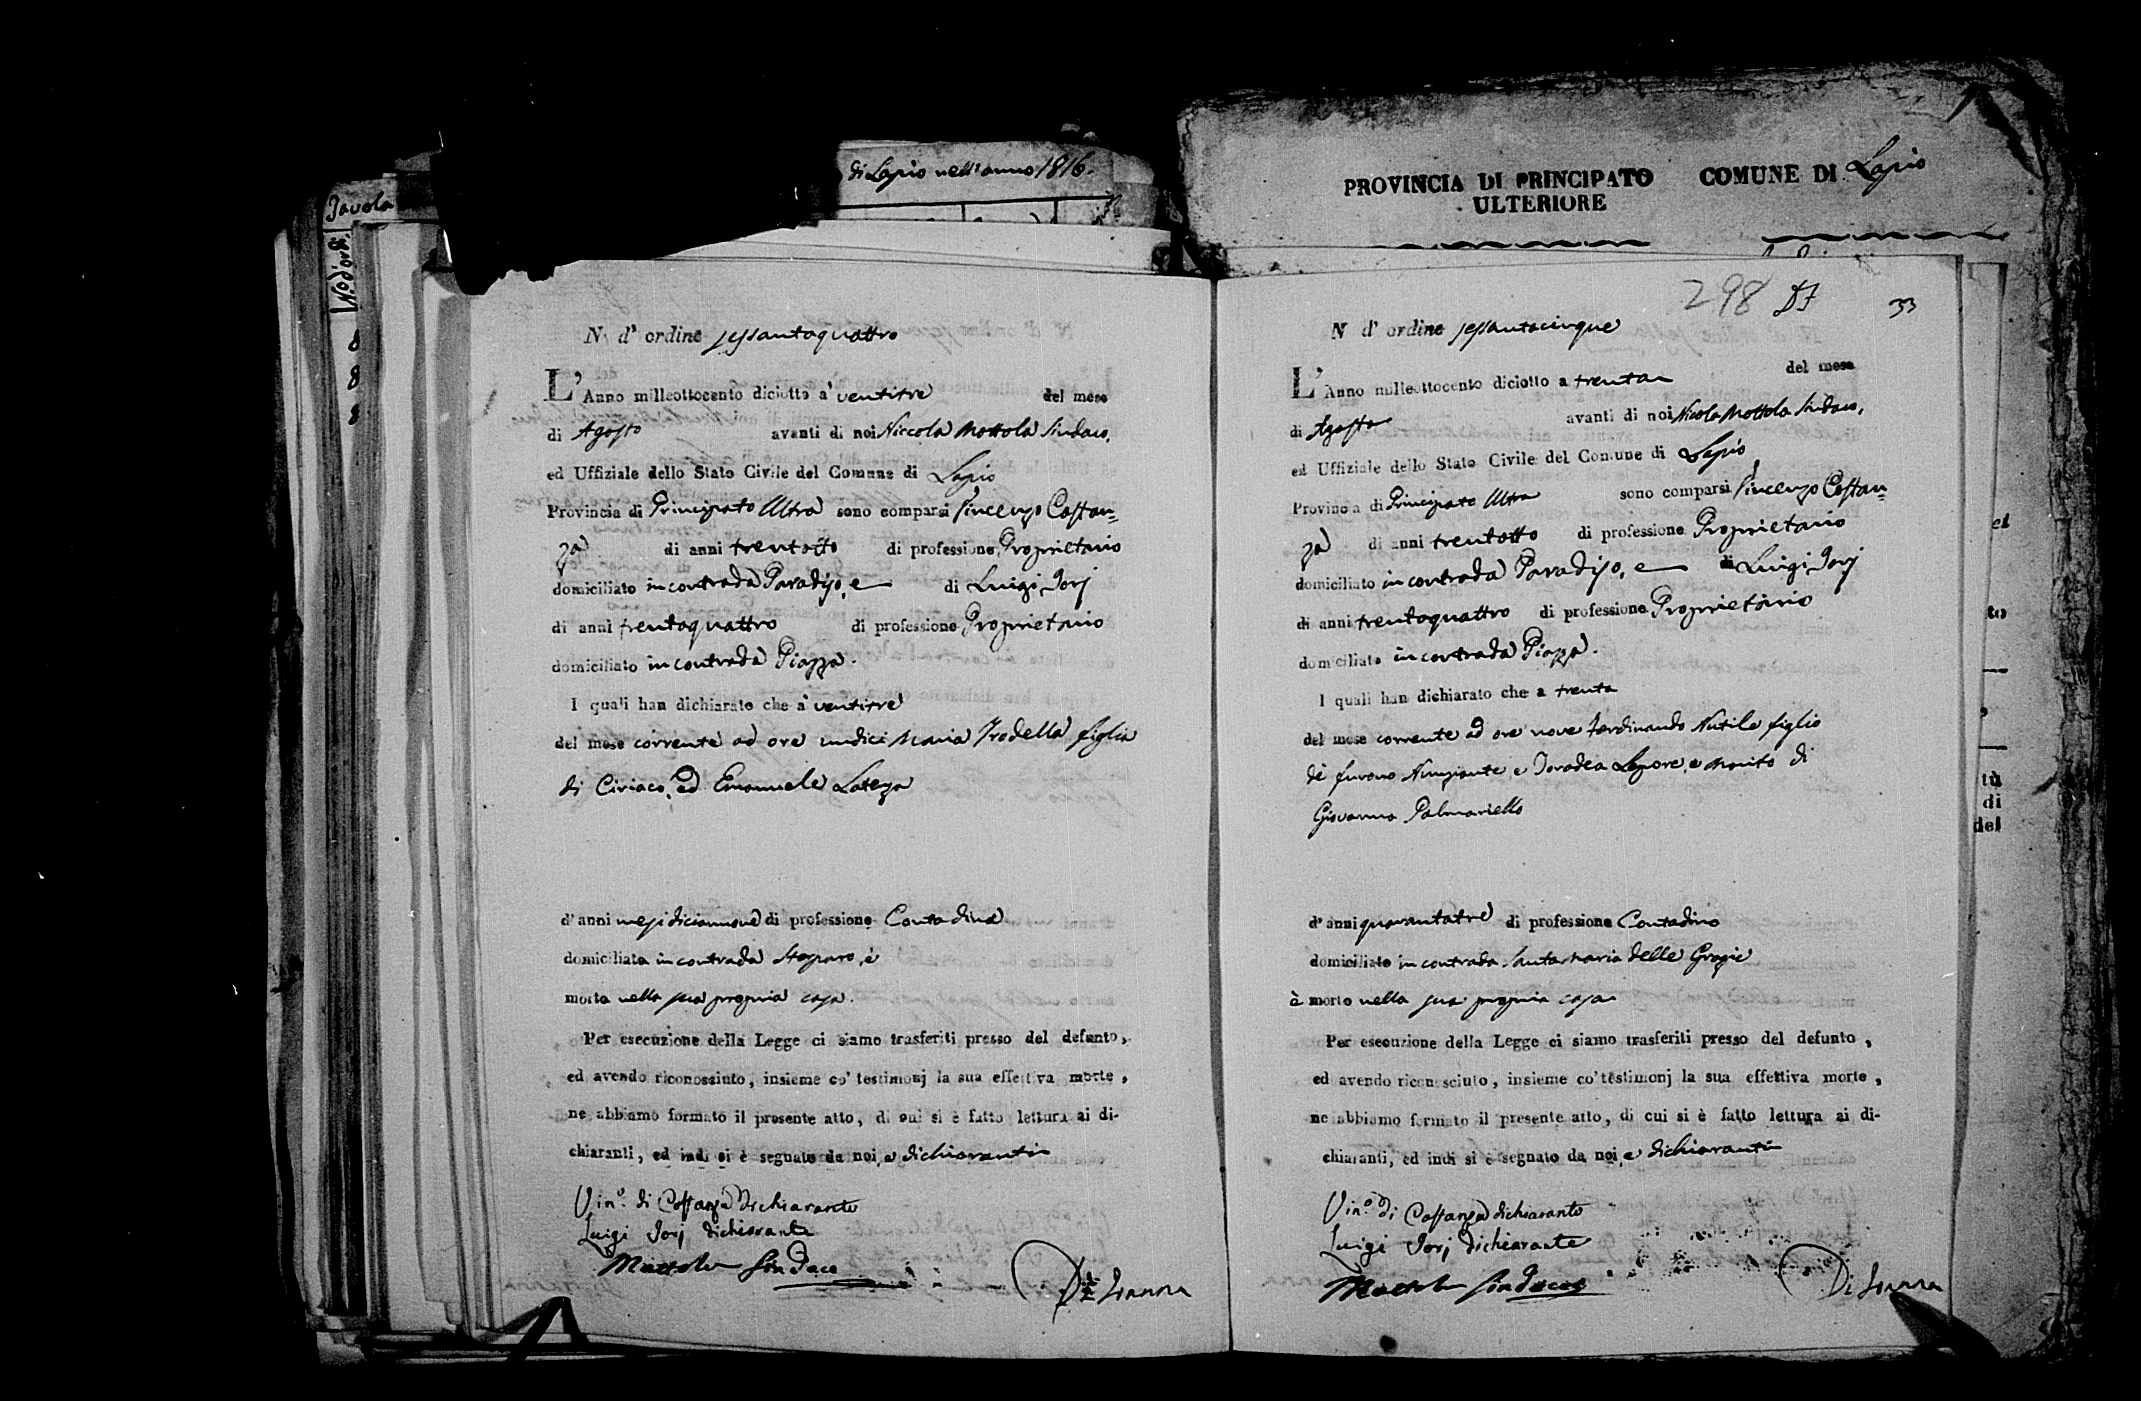 Tavola
N.o d'ord.
8
8
8
di Lapio nell'anno 1816.
PROVINCIA DI PRINCIPATO ULTERIORE
COMUNE DI Lapio
N. d'ordine sessantaquattro
L'Anno milleottocento diciotto a' ventitre del mese
di Agosto avanti di noi Niccola Mottola Sindaco,
ed Uffiziale dello Stato Civile del Comune di Lapio
Provincia di Principato Ultra sono comparsi Vincenzo Costan-
za di anni trentotto di professione Proprietario
domiciliato in contrada Paradiso, e di Luigi Jorj
di anni trentaquattro di professione Proprietario
domiciliato in contrada Piazza.
I quali han dichiarato che a' ventitre
del mese corrente ad ore undici Maria Trodella figlia
di Ciriaco, ed Emanuele
d'anni mesi diciannove di professione Contadina
domiciliata in contrada è
morta nella sua propria casa.
Per esecuzione della Legge ci siamo trasferiti presso del defunto,
ed avendo riconosciuto, insieme co' testimonj la sua effettiva morte,
ne abbiamo formato il presente atto, di cui si è fatto lettura ai di-
chiaranti, ed indi si è segnato da noi, e dichiaranti
Vin.o di Costanza dichiarante
Luigi Jorj dichiarante
Mottola Sindaco
298 33
N d'ordine sessantacinque
L'Anno milleottocento diciotto a trenta del mese
di Agosto avanti di noi Nicola Mottola Sindaco,
ed Uffiziale dello Stato Civile del Comune di Lapio
Provincia di Principato Ultra sono comparsi Vincenzo Costan-
za di anni trentotto di professione Proprietario
domiciliato in contrada Paradiso, e di Luigi Jorj
di anni trentaquattro di professione Proprietario
domiciliato in contrada Piazza.
I quali han dichiarato che a trenta
del mese corrente ad ore nove Ferdinando Nutile figlio
de' furono Nunziante e Lepore, e marito di
Giovanna Palmariello
d'anni quarantatre di professione Contadino
domiciliato in contrada Santa Maria delle Grazie
è morto nella sua propria casa
Per esecuzione della Legge ci siamo trasferiti presso del defunto,
ed avendo riconosciuto, insieme co' testimonj la sua effettiva morte,
ne abbiamo formato il presente atto, di cui si è fatto lettura ai di-
chiaranti, ed indi si è segnato da noi, e dichiaranti
Vin.o di Costanza dichiarante
Luigi Jorj dichiarante
Mottola Sindaco
to
tù
di
del